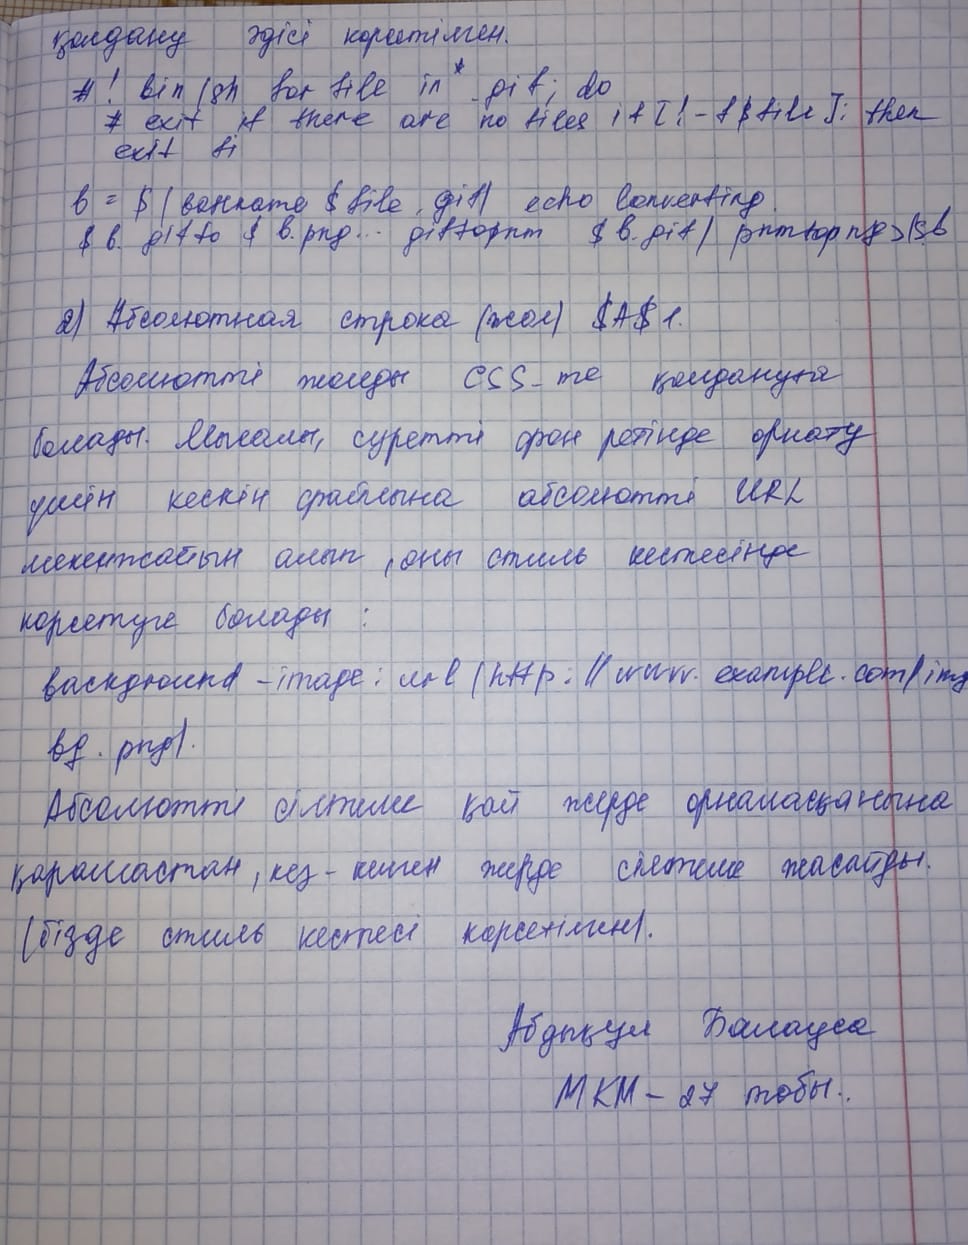 қолдану әдісі көрсетілген.
#! bin/sh for file in * .gif; do
# exit if there are no files if [! -f $file]; then
exit fi
b = $(bankname $file .gif) echo Converting
$b. gif to $b.png... giftopnm $b.gif | pnmtopng > $b
2) Абсолютная строка (жол) $A$1.
Абсолютті жолды CSS-те қолдануға
болады. Мысалы, суретті фон ретінде орнату
үшін кескін файлына абсолютті URL
мекенжайын алып, оны стиль кестесінде
көрсетуге болады:
background-image: url (http://www.example.com/img
bg.png).
Абсолютті сілтеме қай жерде орналасқанына
қарамастан, кез-келген жерде сілтеме жасайды.
(бізде стиль кестесі көрсетілген).
Абдықул Балауса
МКМ-27 тобы..